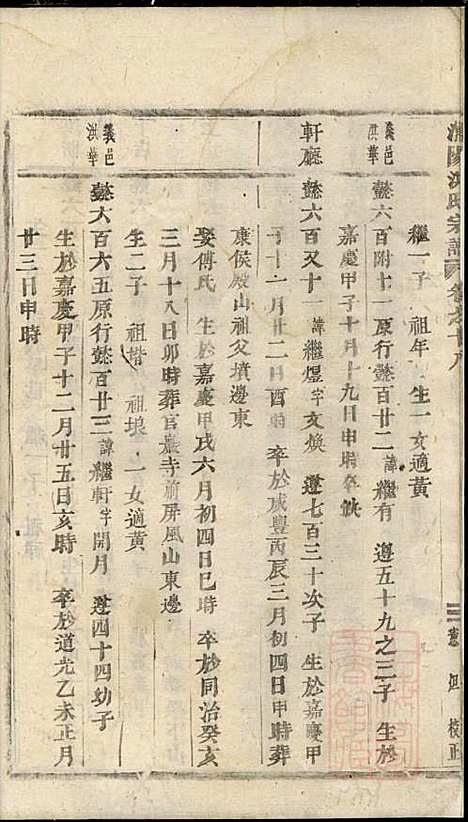 浦陽洪氏宗譜 卷之十八
繼一子 祖年 生一女適黃
義邑洪華 懿六百附十一原行懿百廿二 諱繼有 遵五十九之三子 生於
嘉慶甲子十月十九日申時卒缺
軒廳 懿六百又十一 諱繼煜字文煥 遵七百三十次子 生於嘉慶甲
子十一月廿二日酉時 卒於咸豐丙辰三月初四日申時葬
康侯殿山祖父墳邊東
娶傅氏 生於嘉慶甲戌六月初四日巳時 卒於同治癸亥
三月十八日卯時葬官巖寺前屏風山東邊
生二子 祖楷 祖琅 一女適黃
義邑洪華 懿六百六五原行懿百廿三 諱繼軒字開月 遵四十四幼子
生於嘉慶甲子十二月廿五日亥時 卒於道光乙未正月
廿三日申時